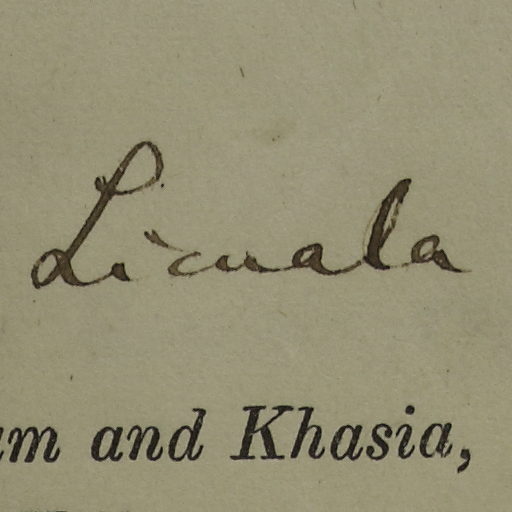 Licuala
am and Khasia,